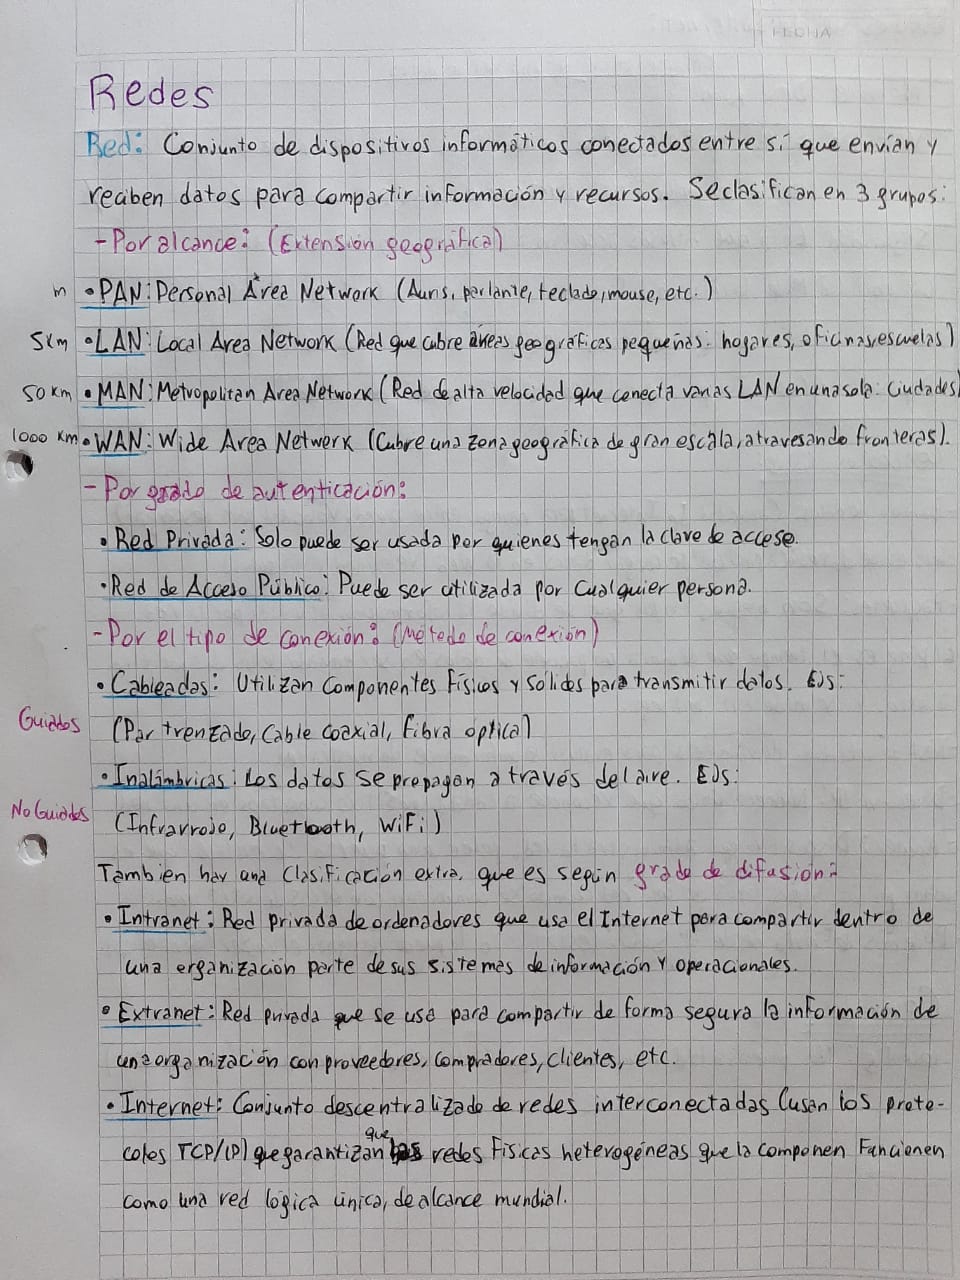 FECHA
Redes
Red: Conjunto de dispositivos informáticos conectados entre sí que envían y
reciben datos para compartir información y recursos. Se clasifican en 3 grupos:
- Por alcance: (Extensión geográfica)
m • PAN: Personal Área Network (Auris, parlante, teclado, mouse, etc.)
5km • LAN: Local Area Network (Red que cubre áreas geográficas pequeñas: hogares, oficinas, escuelas)
50 km • MAN: Metropolitan Area Network (Red de alta velocidad que conecta varias LAN en una sola: Ciudades)
1000 km • WAN: Wide Area Network (Cubre una zona geográfica de gran escala, atravesando fronteras).
- Por grado de autenticación:
• Red Privada: Solo puede ser usada por quienes tengan la clave de acceso.
• Red de Acceso Público: Puede ser utilizada por cualquier persona.
- Por el tipo de conexión: (Método de conexión)
• Cableadas: Utilizan componentes físicos y sólidos para transmitir datos. EJs:
Guiados (Par trenzado, Cable coaxial, Fibra optica)
• Inalámbricas: Los datos se propagan a través del aire. EJs:
No Guiados (Infrarrojo, Bluetooth, WiFi)
Tambien hay una clasificación extra, que es según grado de difusión:
• Intranet: Red privada de ordenadores que usa el Internet para compartir dentro de
una organización parte de sus sistemas de información y operacionales.
• Extranet: Red privada que se usa para compartir de forma segura la información de
una organización con proveedores, compradores, clientes, etc.
• Internet: Conjunto descentralizado de redes interconectadas (usan los proto-
colos TCP/IP) que garantizan que las redes físicas heterogéneas que la componen funcionen
como una red lógica única, de alcance mundial.